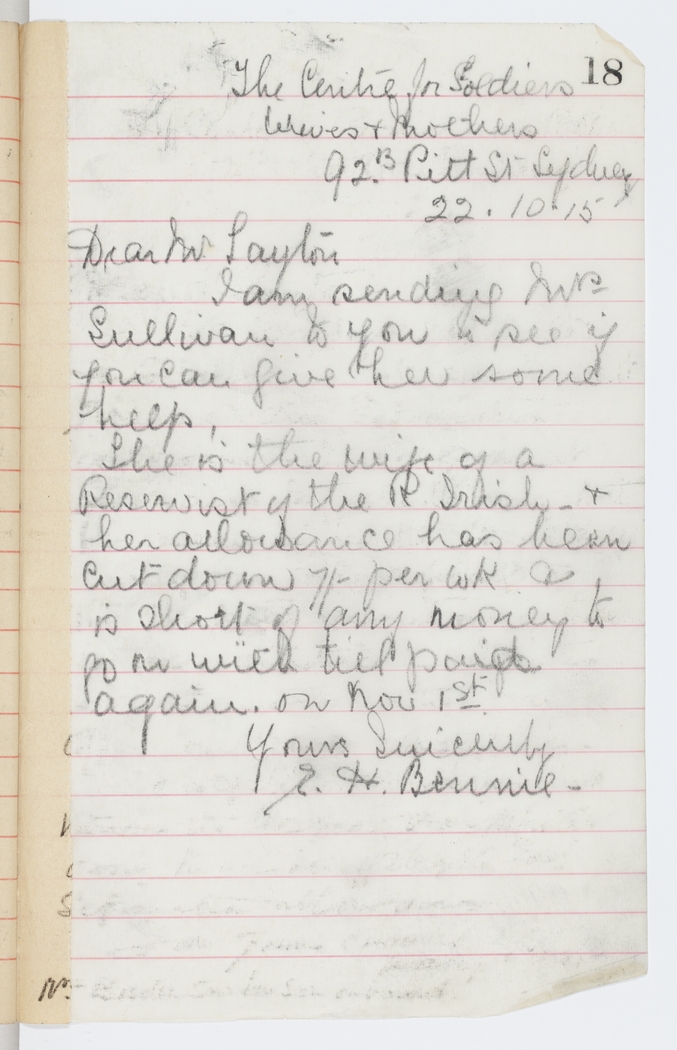 18
The Centre for Soldiers
Wives & Mothers
92.B Pitt St Sydney
22.10.15
Dear Mr Layton
I am sending Mrs
Sullivan to you to see if
you can give her some
help,
She is the wife of a
Reservist of the R Irish - &
her allowance has been
cut down 7/- per wk &
is short of any money to
go on with till paid
again. on Nov 1st
Yours Sincerely
E. H. Bennie -